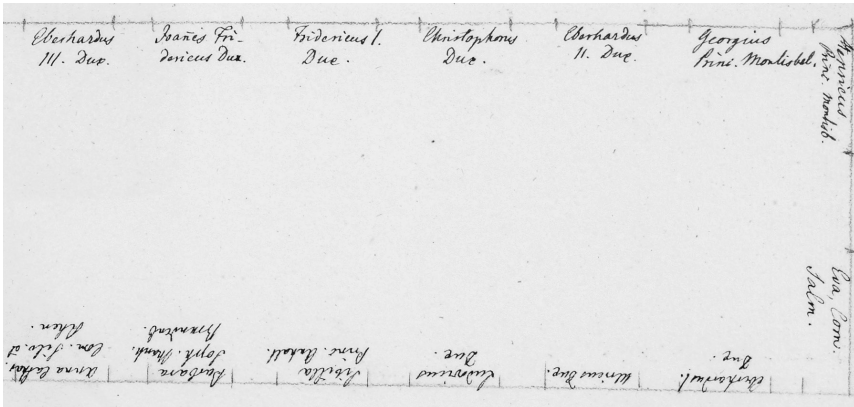 Eberhardus
III. Dux.
Joañes Fri-
dericus Dux.
Fridericus I.
Dux.
Christophorus
Dux.
Eberhardus
II. Dux.
Georgius
Princ. Montisbel.
Henricus
Princ. Montisb.
Eva, Com.
Salm.
Eberhardus I.
Dux.
Ulricus Dux.
Ludovicus
Dux.
Sibilla
Princ. Anhalt.
Barbara
Soph. March.
Brandenb.
Anna Cathar.
Com. Silv. et
Rhen.